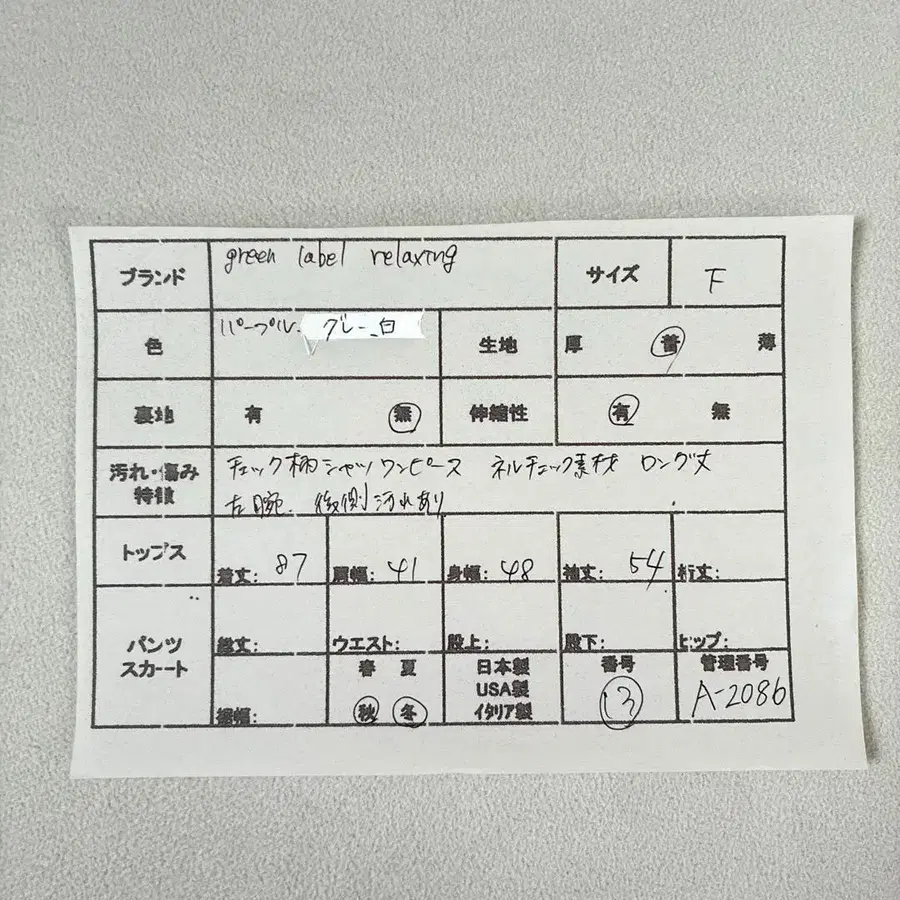 ブランド green label relaxing サイズ F
色 パープル、グレー、白 生地 厚 普 薄
裏地 有 無 伸縮性 有 無
汚れ・傷み チェック柄シャツワンピース ネルチェック素材 ロング丈
特徴 左腕、後側汚れあり
トップス 着丈: 87 肩幅: 41 身幅: 48 袖丈: 54 裄丈:
パンツ スカート 総丈: ウエスト: 股上: 股下: ヒップ:
裾幅: 春 夏 日本製 番号 管理番号
USA製
秋 冬 イタリア製 13 A-2086